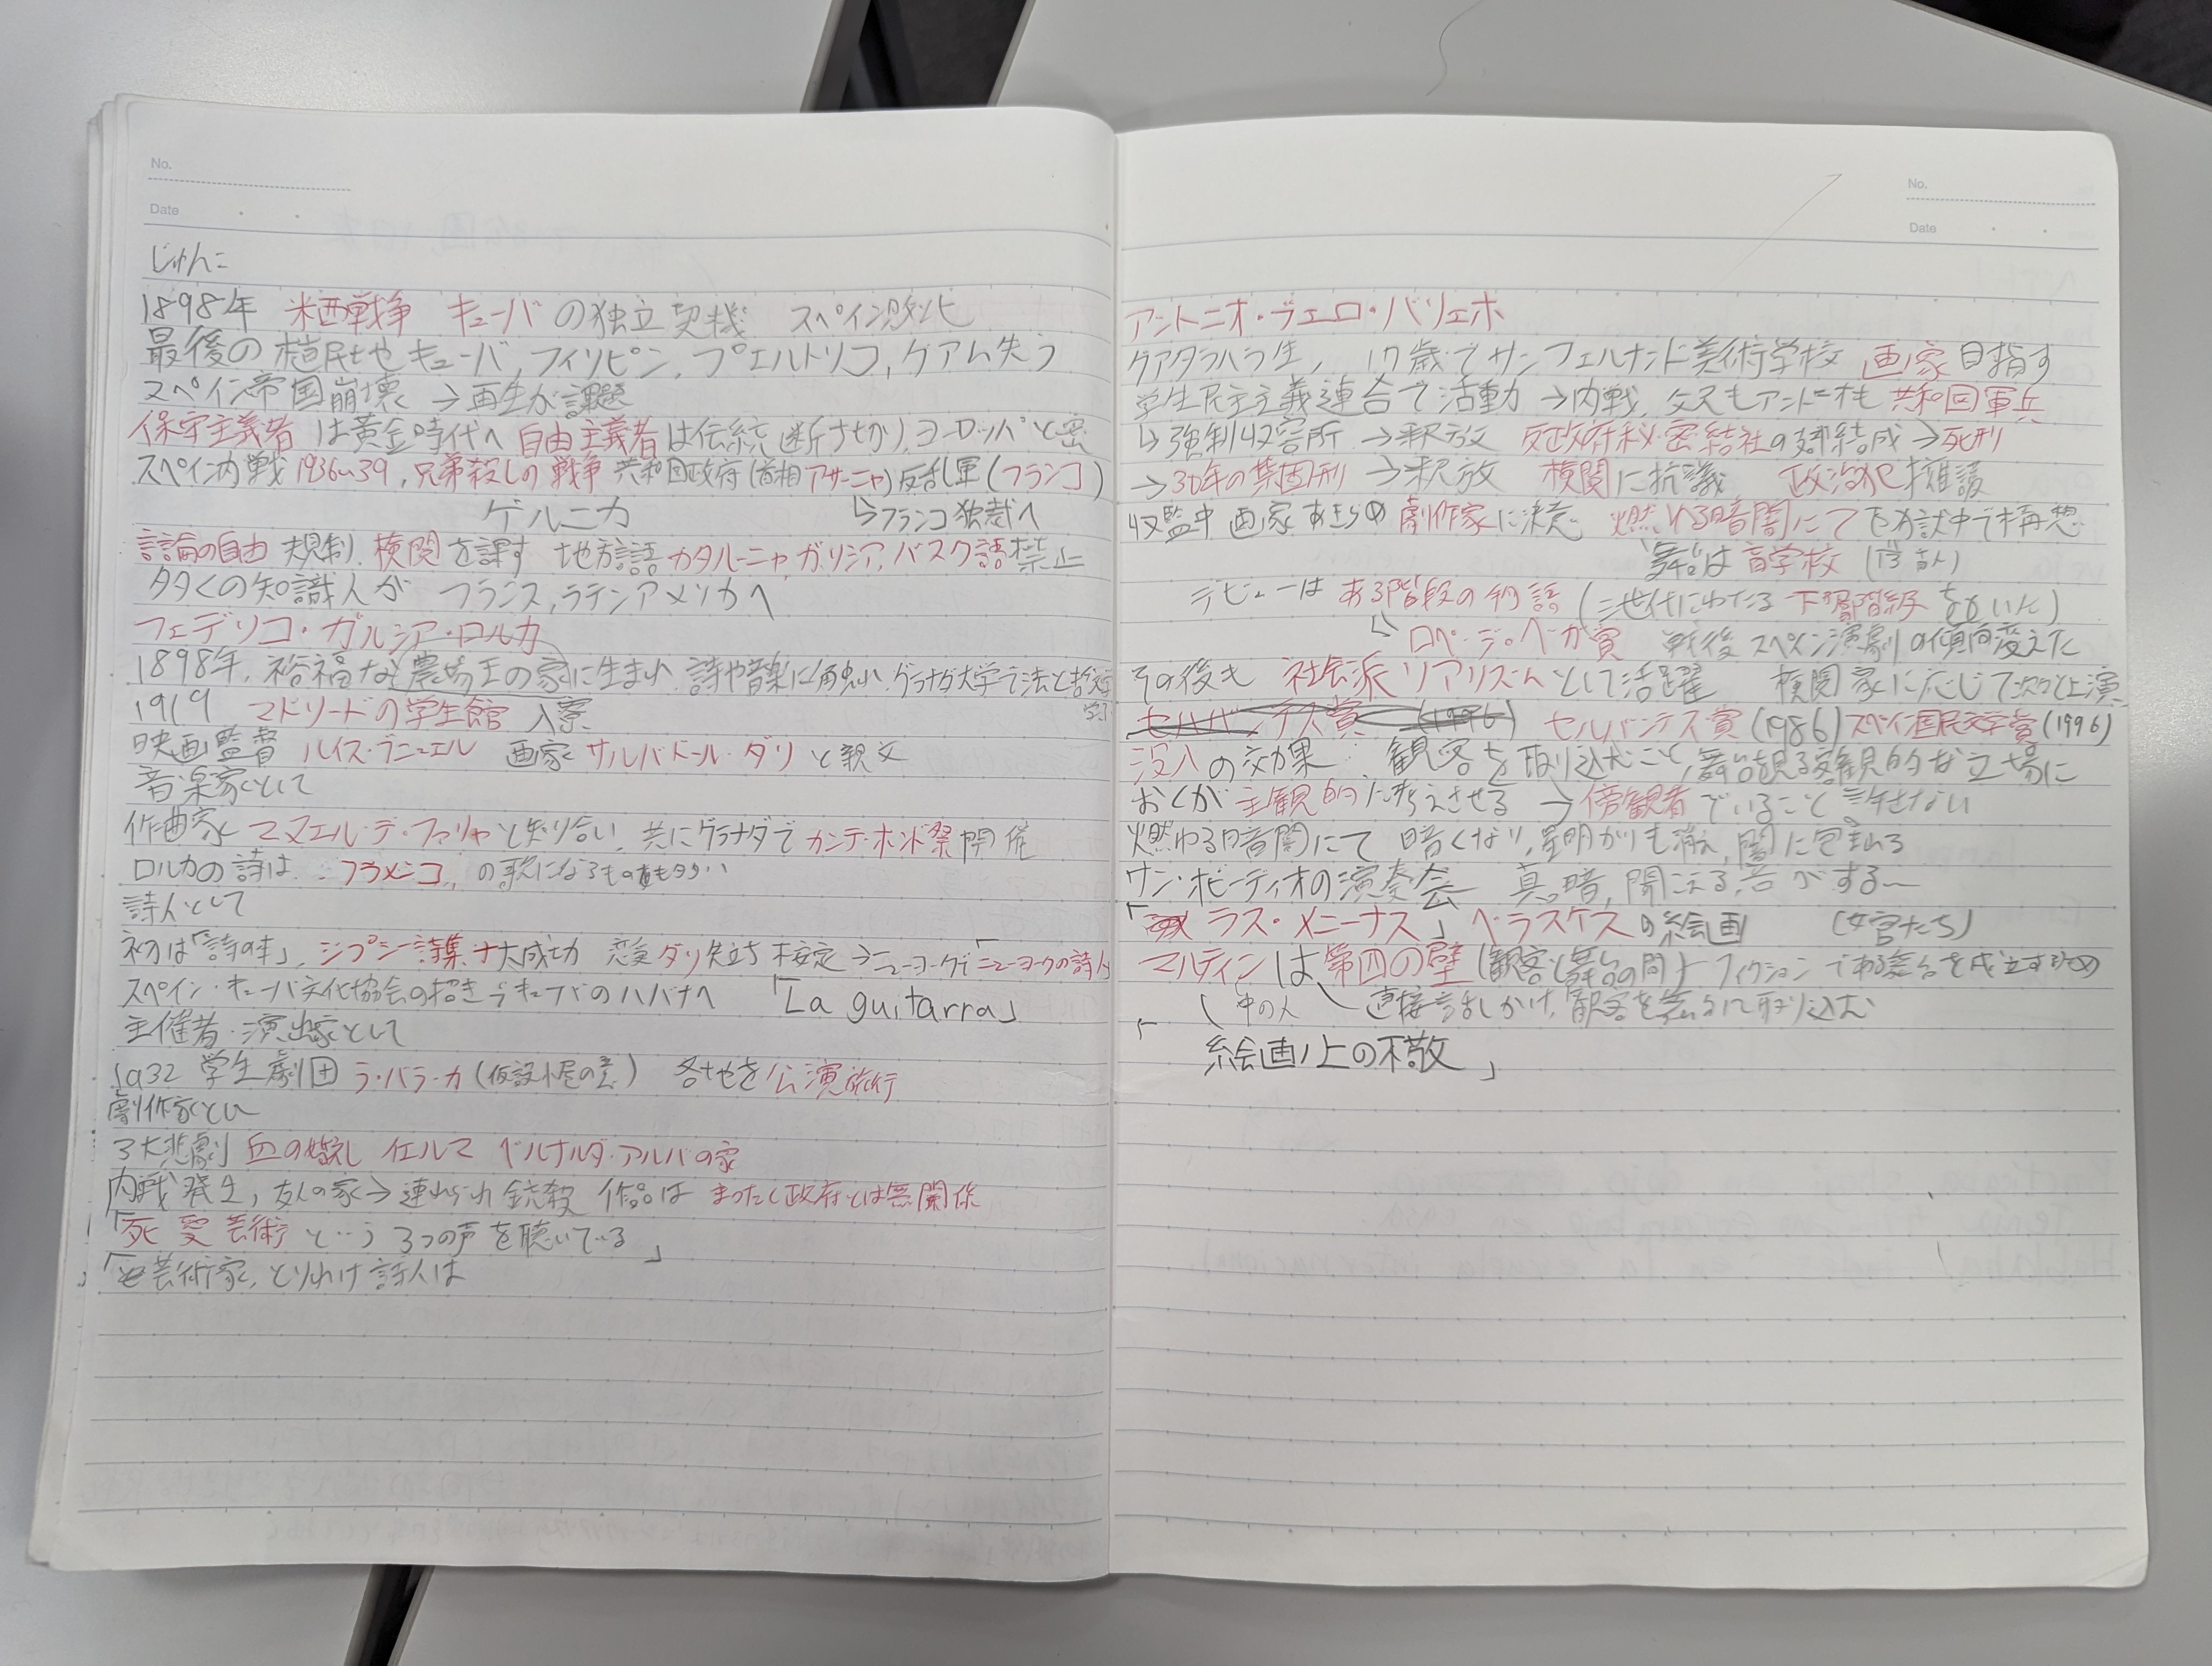 No.
Date
じゅんこ
1898年 米西戦争 キューバの独立契機 スペイン敗北
最後の植民地キューバ, フィリピン, プエルトリコ, グアム失う
スペイン帝国崩壊 →再生が課題
保守主義者は黄金時代へ 自由主義者は伝統断ち切り, ヨーロッパと密
スペイン内戦 1936〜39, 兄弟殺しの戦争 共和国政府(首相アサーニャ)反乱軍(フランコ)
ゲルニカ ↳フランコ独裁へ
言論の自由 規制, 検閲を課す 地方語 カタルーニャ, ガリシア, バスク語禁止
多くの知識人が フランス, ラテンアメリカへ
フェデリコ・ガルシア・ロルカ
1898年, 裕福な農場主の家に生まれ, 詩や音楽に触れ, グラナダ大学で法と哲文学
1919 マドリードの学生館 入寮
映画監督 ルイス・ブニュエル 画家 サルバドール・ダリ と親交
音楽家として
作曲家 マヌエル・デ・ファリャと知り合い, 共にグラナダで カンテ・ホンド祭 開催
ロルカの詩は フラメンコ の歌になるものも多い
詩人として
初は「詩の本」, ジプシー詩集 大成功 恋愛 ダリ 失立ち →ニューヨークで「ニューヨークの詩人
スペイン・キューバ文化協会の招き→キューバのハバナへ 「La guitarra」
主催者・演出家として
1932 学生劇団 ラ・バラ・カ (仮設小屋の意) 各地を公演旅行
劇作家とし
3大悲劇 血の婚礼 イェルマ ベルナルダ・アルバの家
内戦発生, 友人の家→連れられ銃殺 作品は まったく政府とは無関係
「死 愛 芸術 という 3つの声を聴いている」
「芸術家, とりわけ詩人は
No.
Date
アントニオ・ブエロ・バリェホ
グアダラハラ生, 17歳でサンフェルナンド美術学校 画家目指す
学生民主主義連合で活動 →内戦, 父兄もアントニオも 共和国軍兵
↳強制収容所 →釈放 反政府秘密結社の 結成→死刑
→30年の禁固刑 →釈放 検閲に抗議 政治犯擁護
収監中 画家あきらめ 劇作家に決意 燃ゆる暗闇にて を獄中で構想
舞台は盲学校
デビューは ある階段の物語 (三世代にわたる 下層階級 をえがいた)
↳ ロペ・デ・ベガ賞 戦後スペイン演劇の傾向変えた
その後も 社会派リアリズムとして活躍 検閲家に応じて次々と上演
セルバンテス賞 (1996) セルバンテス賞(1986) スペイン国民文学賞(1996)
没入の効果: 観客を取り込むこと, 舞台を観る客観的な立場に
おくが 主観的に考えさせる →傍観者でいること許せない
燃ゆる暗闇にて 暗くなり, 星明かりも消え, 闇に包まれる
サン・オビーディオの演奏会 真っ暗, 聞こえる音がする〜
「ラス・メニーナス」 ベラスケスの絵画 (女官たち)
マルティンは第四の壁(観客と舞台の間) フィクションである舞台を成立するため
中の人 直接話しかけ, 観客を舞台に取り込む
「絵画ノ上の不敬」